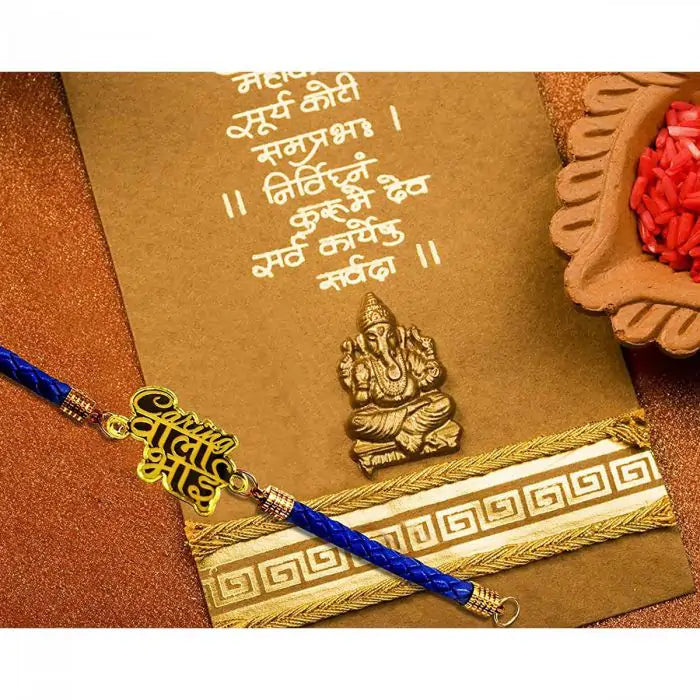 सूर्य कोटी
समप्रभः |
|| निर्विघ्नं
कुरूमे देव
सर्व कार्येषु
सर्वदा ||
Caring
वाला
भाई